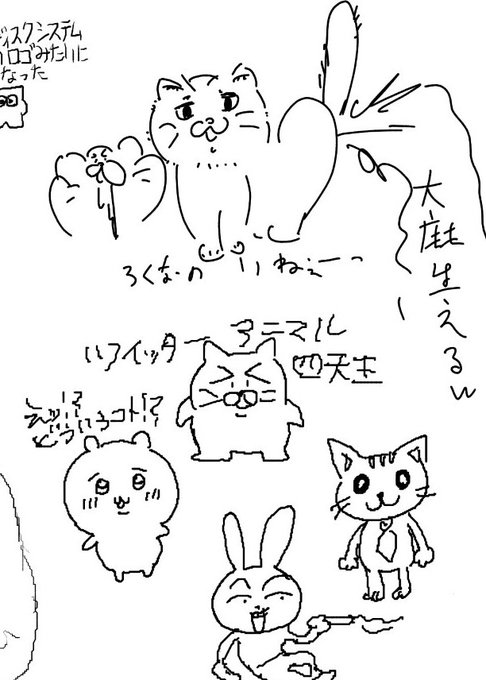 ディスクシステム
のロゴみたいに
なった
大鹿生えるw
ろくなのいねぇーっ
ツイッターアニマル
四天王
えッ!?
どういうコト!?